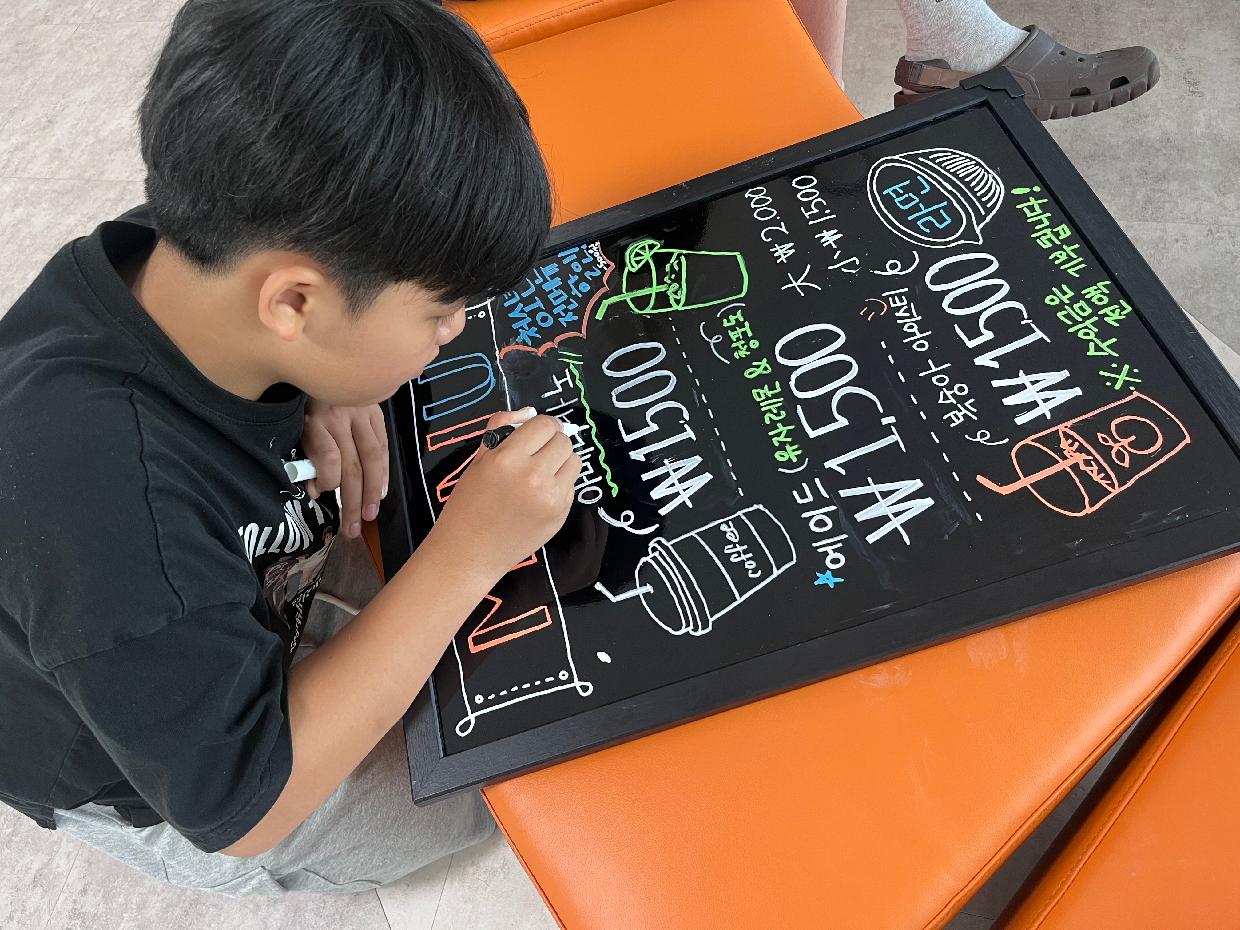 MENU
아메리카노
₩1500
coffee
★에이드 (유자레몬 & 청포도)
₩1,500
大 ₩2.000
小 ₩1500
복숭아 아이스티
₩1500
라면
※수익금은 전액 기부됩니다!